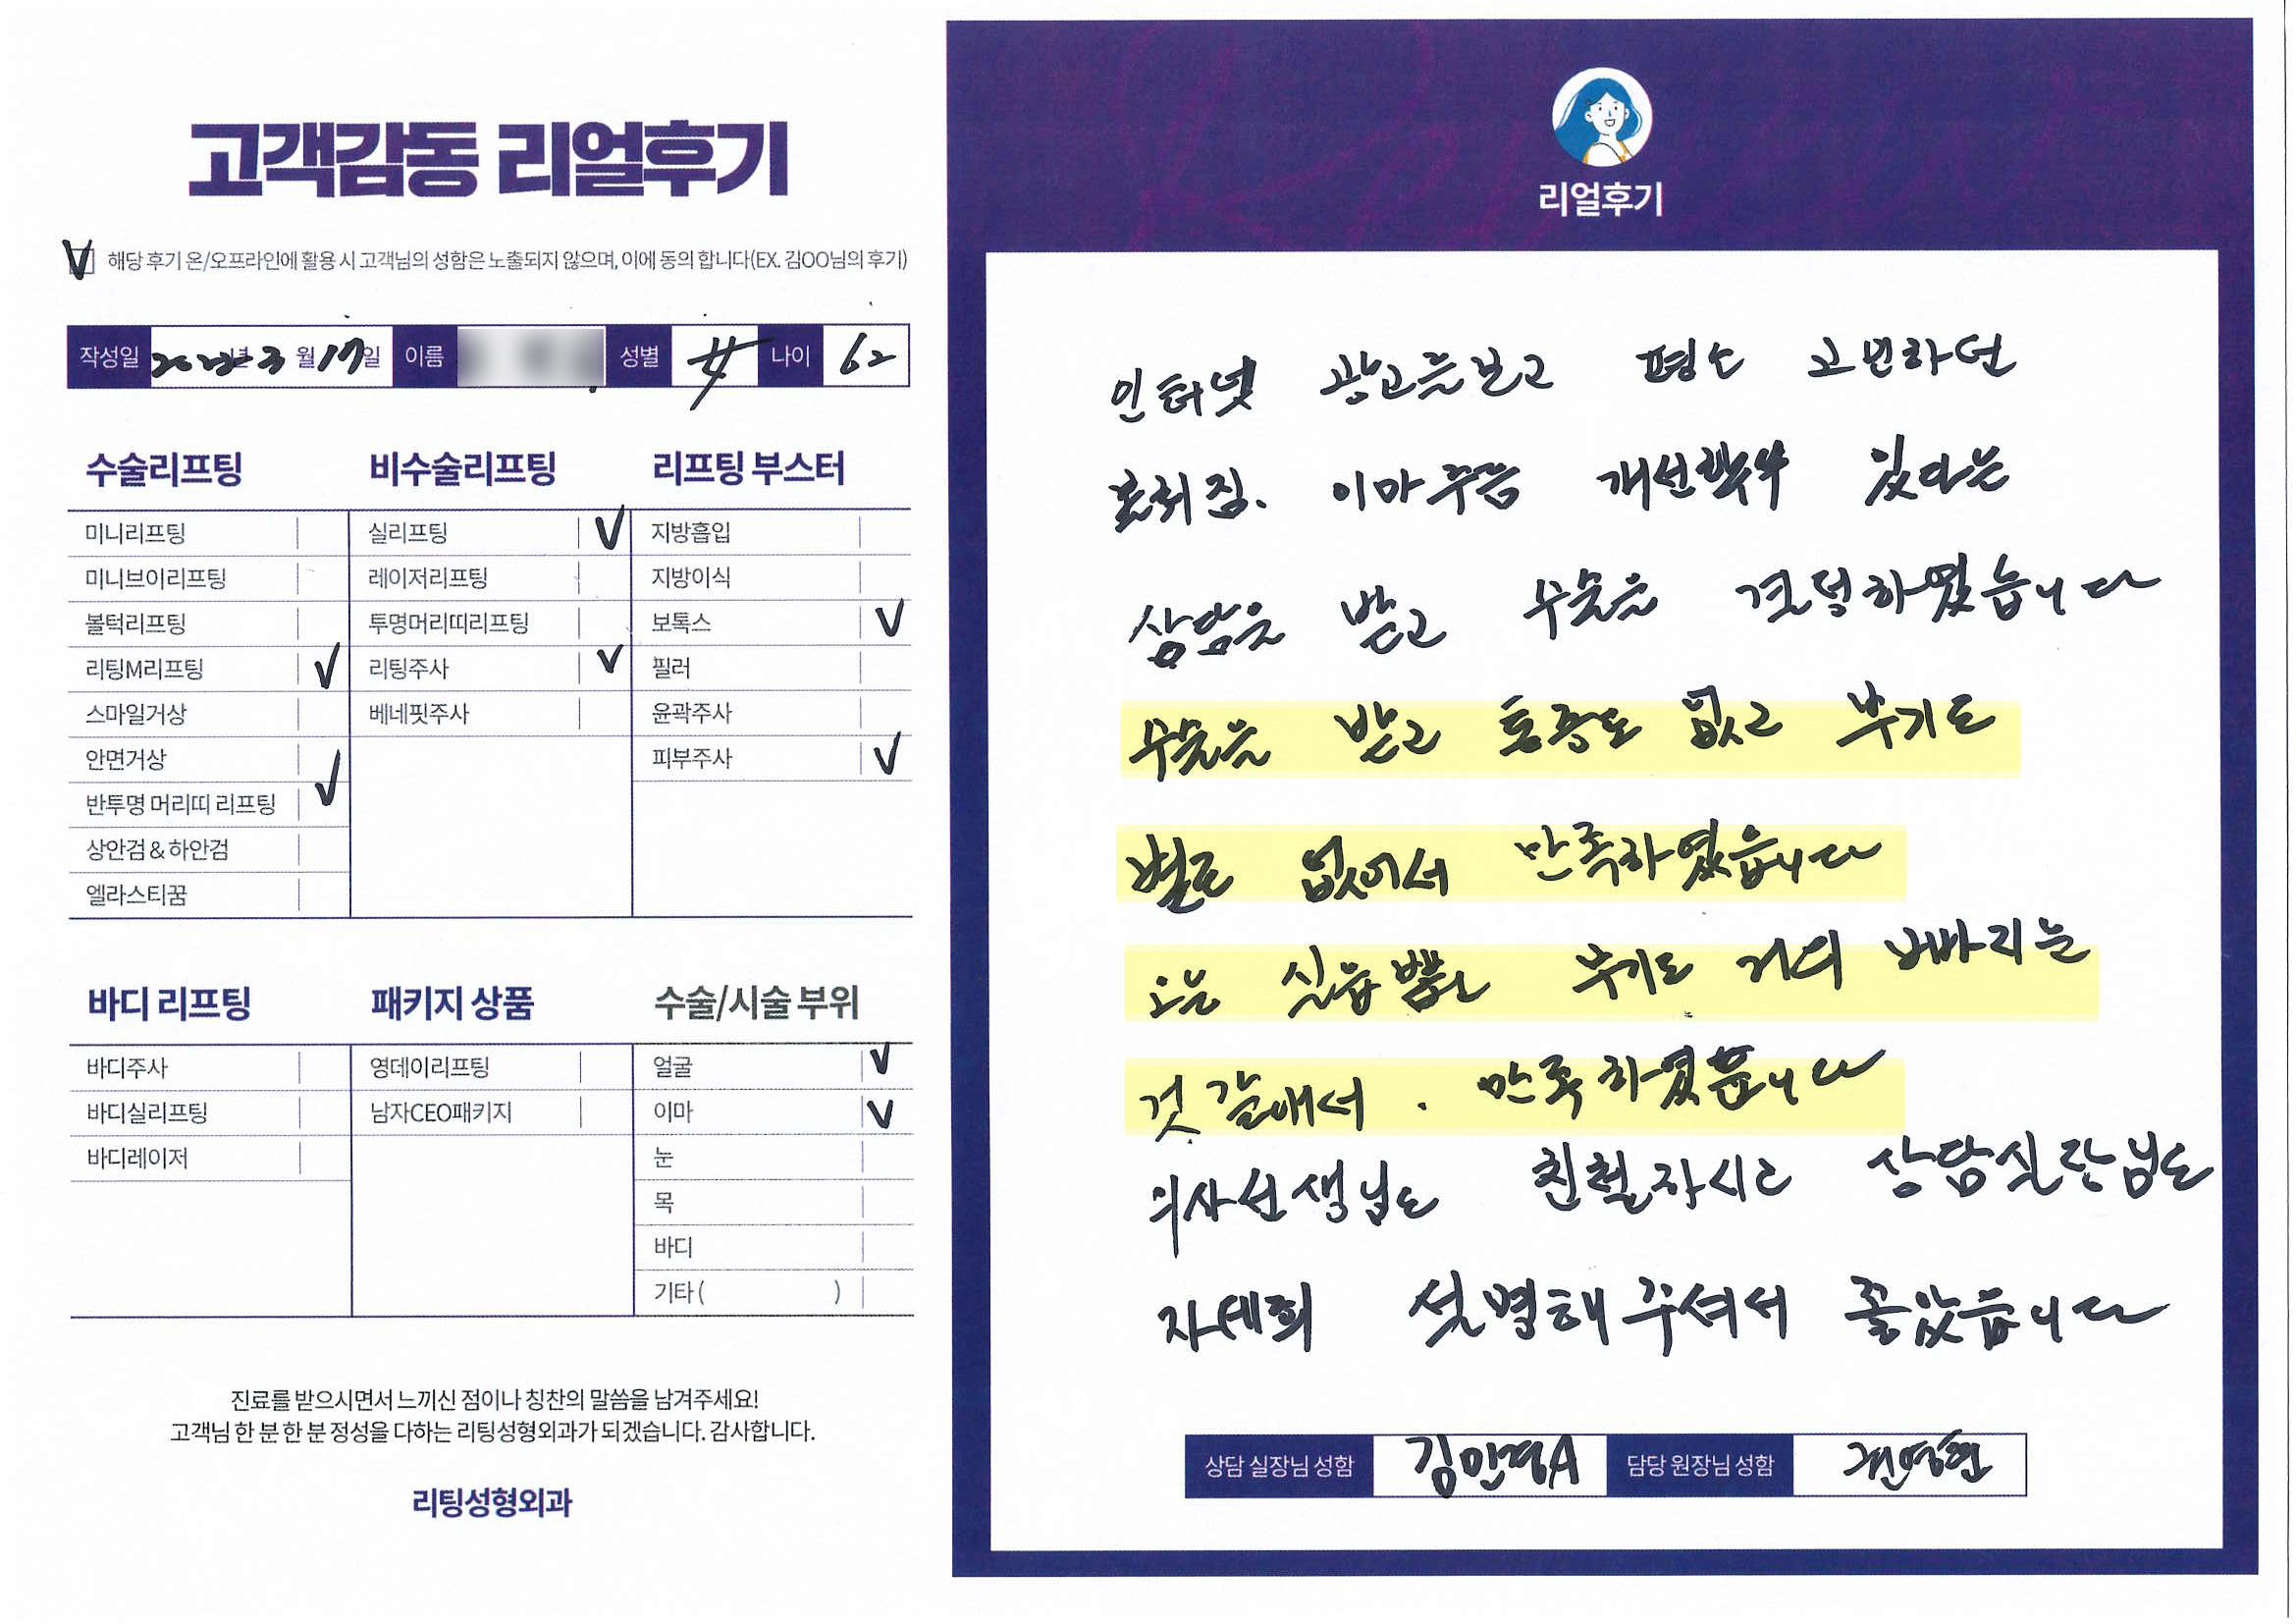 고객감동 리얼후기
해당 후기 온/오프라인에 활용 시 고객님의 성함은 노출되지 않으며, 이에 동의 합니다(EX. 김OO님의 후기)
작성일 2022년 3월 17일 이름 성별 女 나이 62
수술리프팅
미니리프팅
미니브이리프팅
볼턱리프팅
리팅M리프팅
스마일거상
안면거상
반투명 머리띠 리프팅
상안검 & 하안검
엘라스티꿈
비수술리프팅
실리프팅
레이저리프팅
투명머리띠리프팅
리팅주사
베네핏주사
리프팅 부스터
지방흡입
지방이식
보톡스
필러
윤곽주사
피부주사
바디 리프팅
바디주사
바디실리프팅
바디레이저
패키지 상품
영데이리프팅
남자CEO패키지
수술/시술 부위
얼굴
이마
눈
목
바디
기타 ( )
진료를 받으시면서 느끼신 점이나 칭찬의 말씀을 남겨주세요!
고객님 한 분 한 분 정성을 다하는 리팅성형외과가 되겠습니다. 감사합니다.
리팅성형외과
리얼후기
인터넷 광고를보고 평소 고민하던
이마주름 있다는
상담을 받고 수술을 결정하였습니다
수술을 받고 통증도 없고 부기도
별로 없어서 만족하였습니다
오늘 실밥뽑고 부기도 거의
것 같애서. 만족하였습니다
의사선생님도 친철하시고 상담실장님도
자세희 설명해주셔서 좋았습니다
상담 실장님 성함 김민경A 담당 원장님 성함